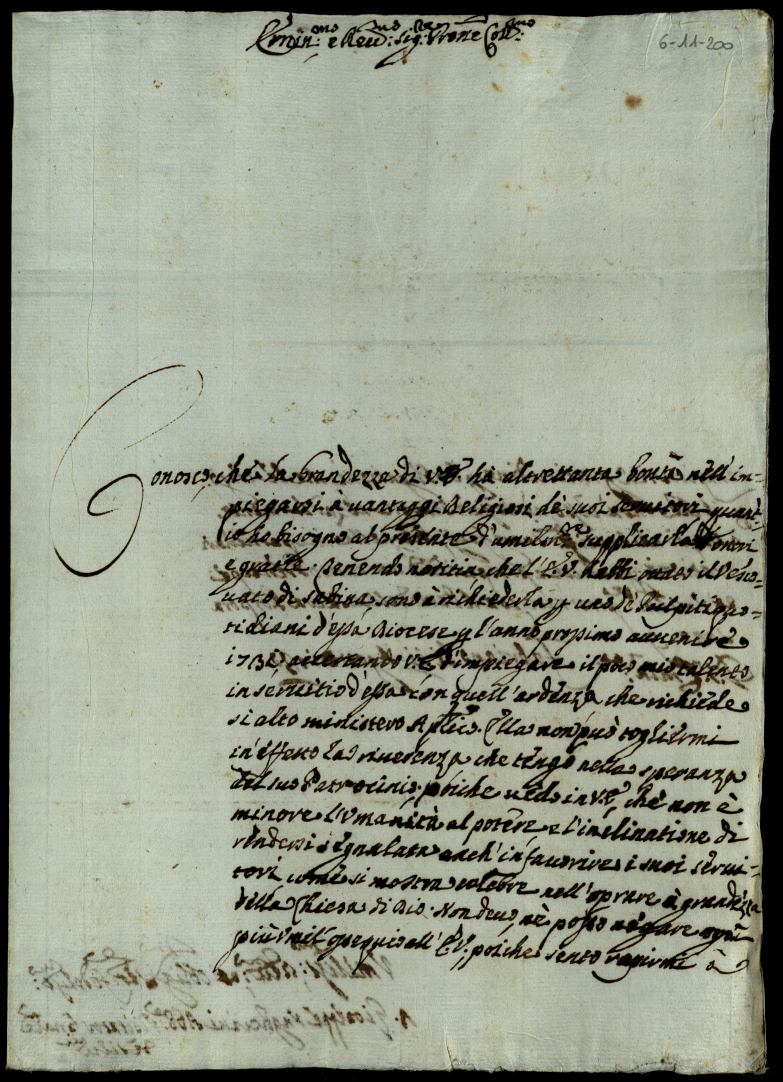 Emin:mo e Reud:mo Sig:re Prone Coll:mo
6-11-200
Conosco, che la Grandezza di V.E. hà altrettanta bontà nell'im-
piegarsi à vantaggi Religiosi de suoi seruitori, quant'
io hò bisogno al presente d'umilm.te supplicarla
e gratie. Tenendo notitia che l'E.V. habbi il Vesco-
uato di Sabina, sono à richiederla p uno de Pulpiti quo-
tidiani d'essa Diocese p l'anno prossimo auuenire
accertando V.E. d'impiegare il poco mio talento
in seruitio d'essa con quell'ardenza che richiede
si alto ministero Aplico. Ella non può togliermi
in effetto la riuerenza che tengo nella speranza
del suo Patrocinio, poiche uedo in V.E. che non è
minore l'Vmanità al potere, e l'inclinatione di
rendersi segnalata anch'in fauorire i suoi serui-
tori come si mostra celebre nell'oprare à grandezza
della Chiesa di Dio. Non deuo, nè posso negare ogni
più Vmil'ossequio all'E.V., poiche sento rapirmi à